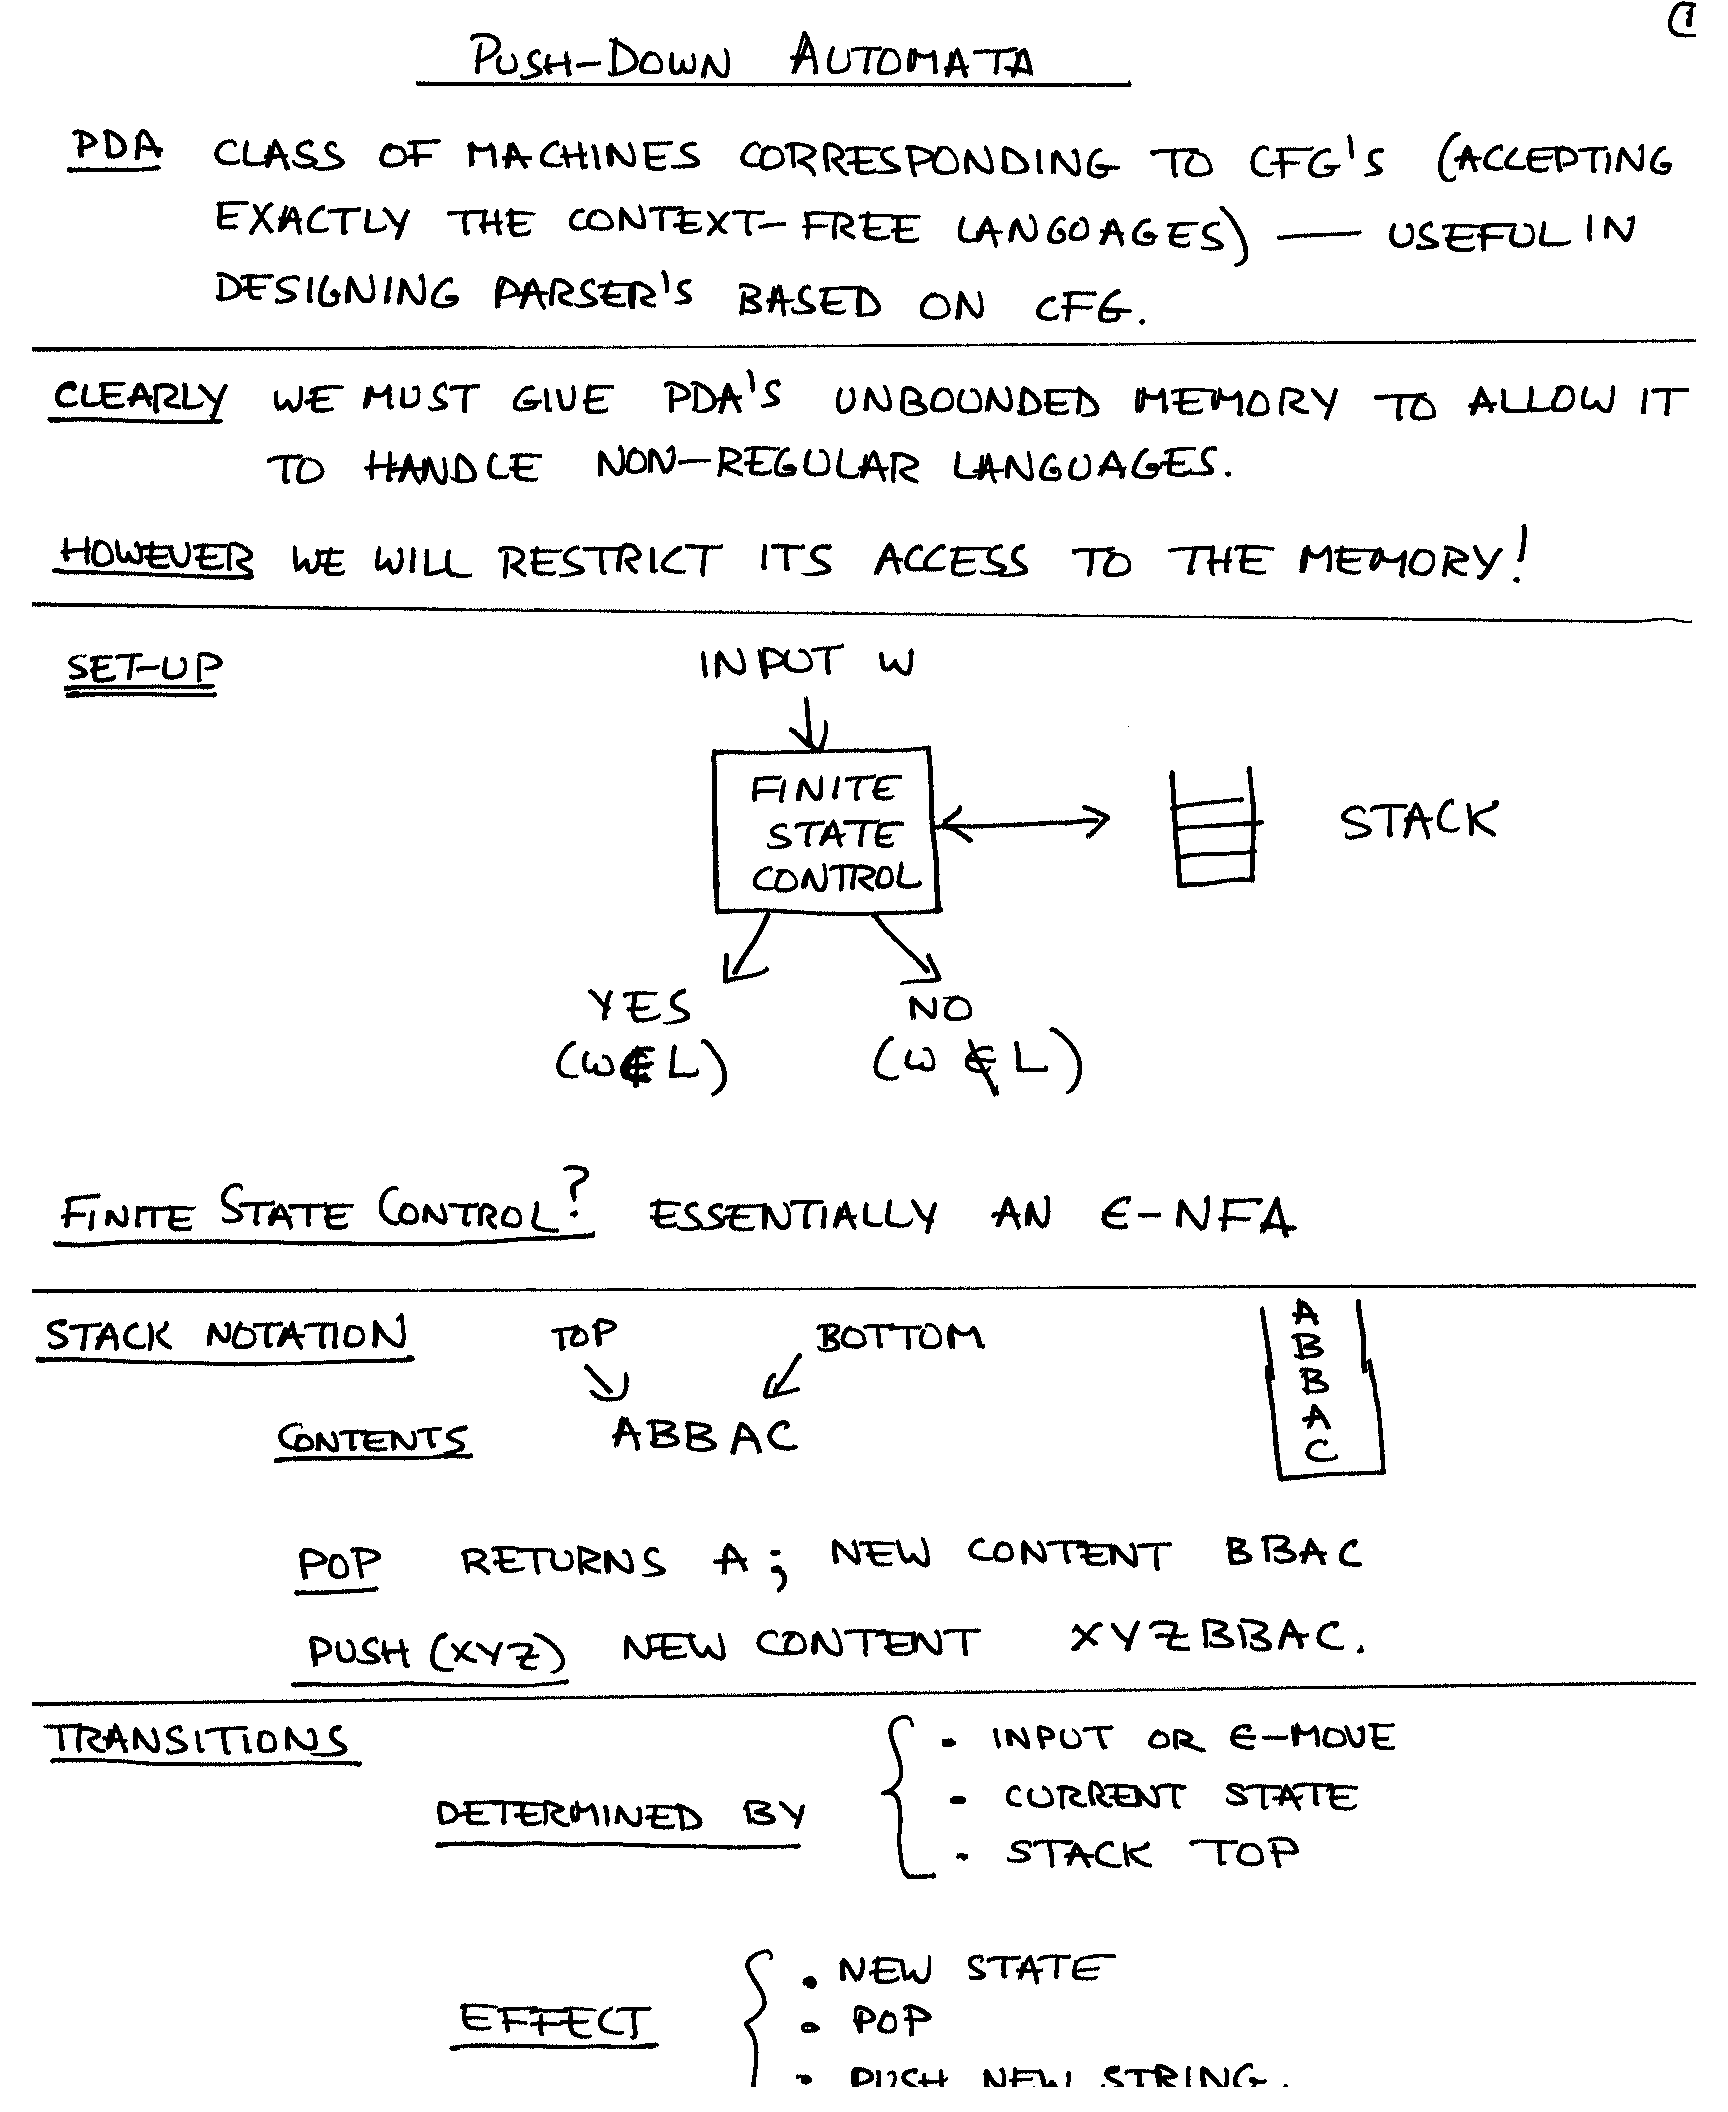 1
PUSH-DOWN AUTOMATA
PDA CLASS OF MACHINES CORRESPONDING TO CFG'S (ACCEPTING
EXACTLY THE CONTEXT-FREE LANGUAGES) — USEFUL IN
DESIGNING PARSER'S BASED ON CFG.
CLEARLY WE MUST GIVE PDA'S UNBOUNDED MEMORY TO ALLOW IT
TO HANDLE NON-REGULAR LANGUAGES.
HOWEVER WE WILL RESTRICT ITS ACCESS TO THE MEMORY!
SET-UP
INPUT W
FINITE
STATE
CONTROL
STACK
YES
(W∈L)
NO
(W ∉ L)
FINITE STATE CONTROL? ESSENTIALLY AN ε-NFA
STACK NOTATION TOP BOTTOM
CONTENTS ABBAC
A
B
B
A
C
POP RETURNS A; NEW CONTENT BBAC
PUSH (XYZ) NEW CONTENT XYZBBAC.
TRANSITIONS
DETERMINED BY
• INPUT OR ε-MOVE
• CURRENT STATE
• STACK TOP
EFFECT
• NEW STATE
• POP
• PUSH NEW STRING.